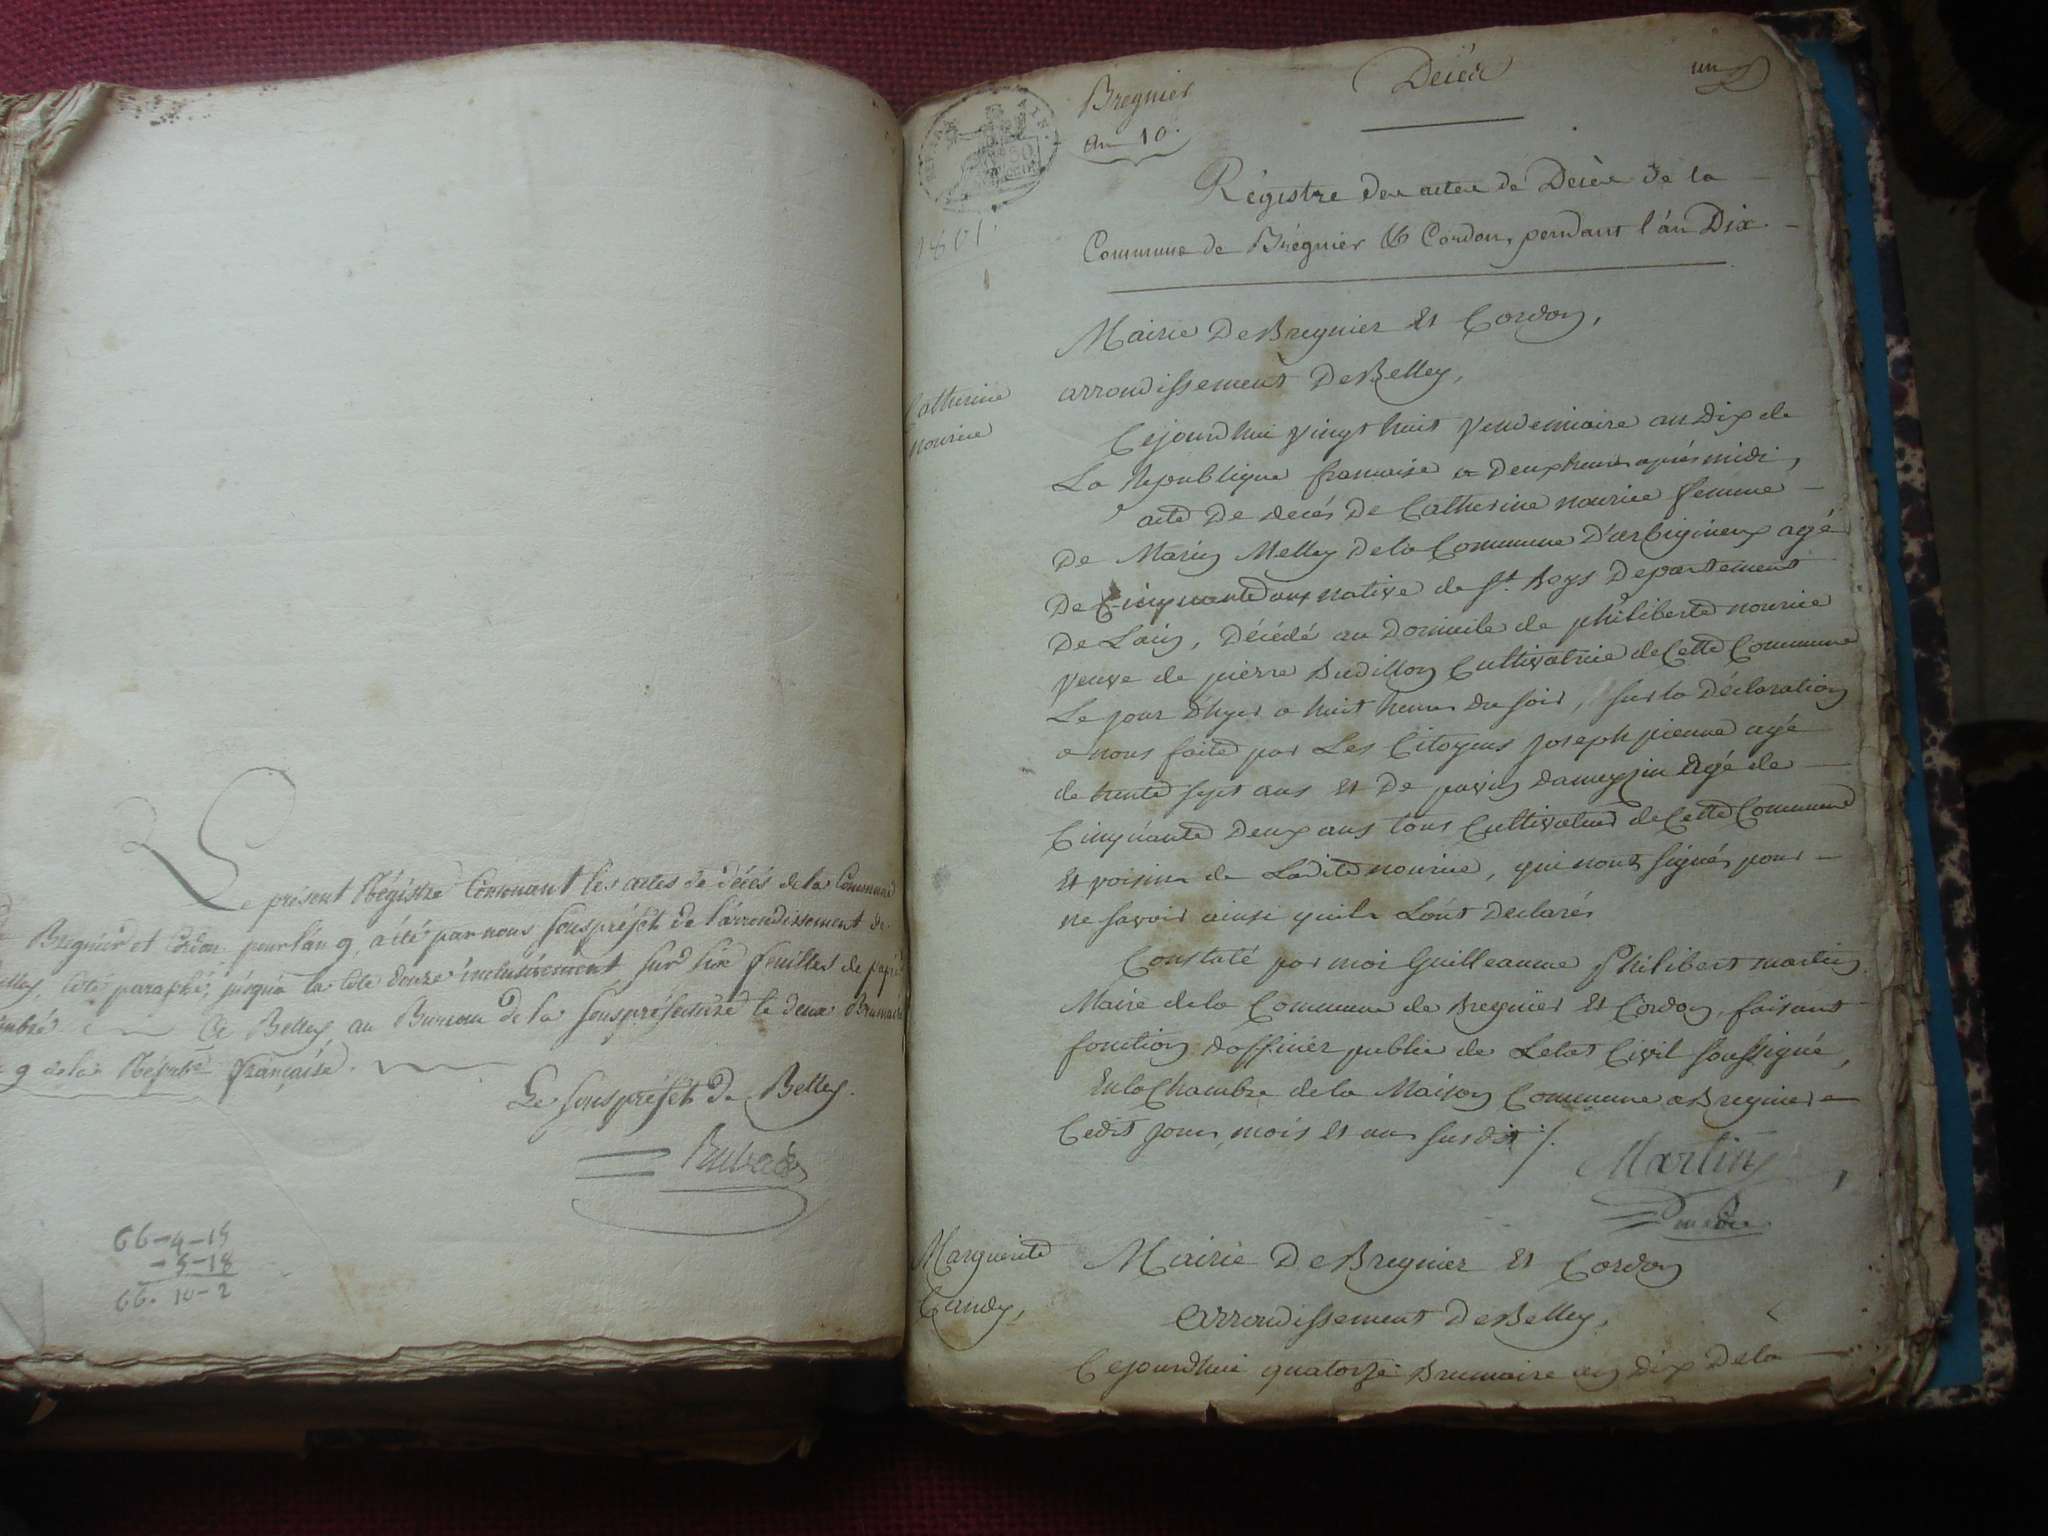 Le présent Régistre Contenant les actes de décés de la Commune
Bregnier et Cordon pour l'an 9, a été par nous souspréfet de l'arrondissement de
cotté paraphé, jusqu'a la cote douze inclusivement sur six feuilles de papier
A Belley au Bureau de la souspréfecture le deux Brumaire
9 de la Répube française.
Le souspréfet de Belley.
66-4-15
-5-18
66. 10-2
Bregnier
an 10.
Décès
un
1801.
Régistre des actes de Décès de la
Commune de Brégnier & Cordon, pendant l'an Dix.
Mairie De Bregnier Et Cordon,
arrondissement De Belley,
Catherine
nourice
Cejourdhui vingt huit Vendemiaire an Dix de
La Republique francaise a deux heures après midi,
acte De decés De Catherine nourice femme
De Marin Melley De la Commune D'arbignieux agé
De Cinquante ans native de St. Boys Departement
De Lain, Décédé au Domicile de philiberte nourice
veuve de pierre Budillon Cultivatrice de Cette Commune
Le jour D'hyer a huit heures du soir, sur la Déclaration
a nous faite par Les Citoyens Joseph pienne agé
de trente sept ans et De Dameyzin agé de
Cinquante Deux ans tous Cultivateurs de Cette Commune
Et voisins de Ladite nourice, qui nont signés pour
ne savoir ainsi quils L'ont Declarés
Constaté par moi Guilleaume philibert martin
Maire de la Commune de Bregnier Et Cordon, faisant
fonction d'officier public de Letat Civil soussigné,
En la Chambre de la Maison Commune a Bregnier
Cedit jour, mois et an susdit ./.
Martin
Marguerite
Candy,
Mairie De Bregnier Et Cordon
arrondissement De Belley,
Cejourdhui quatorze Brumaire an Dix De la